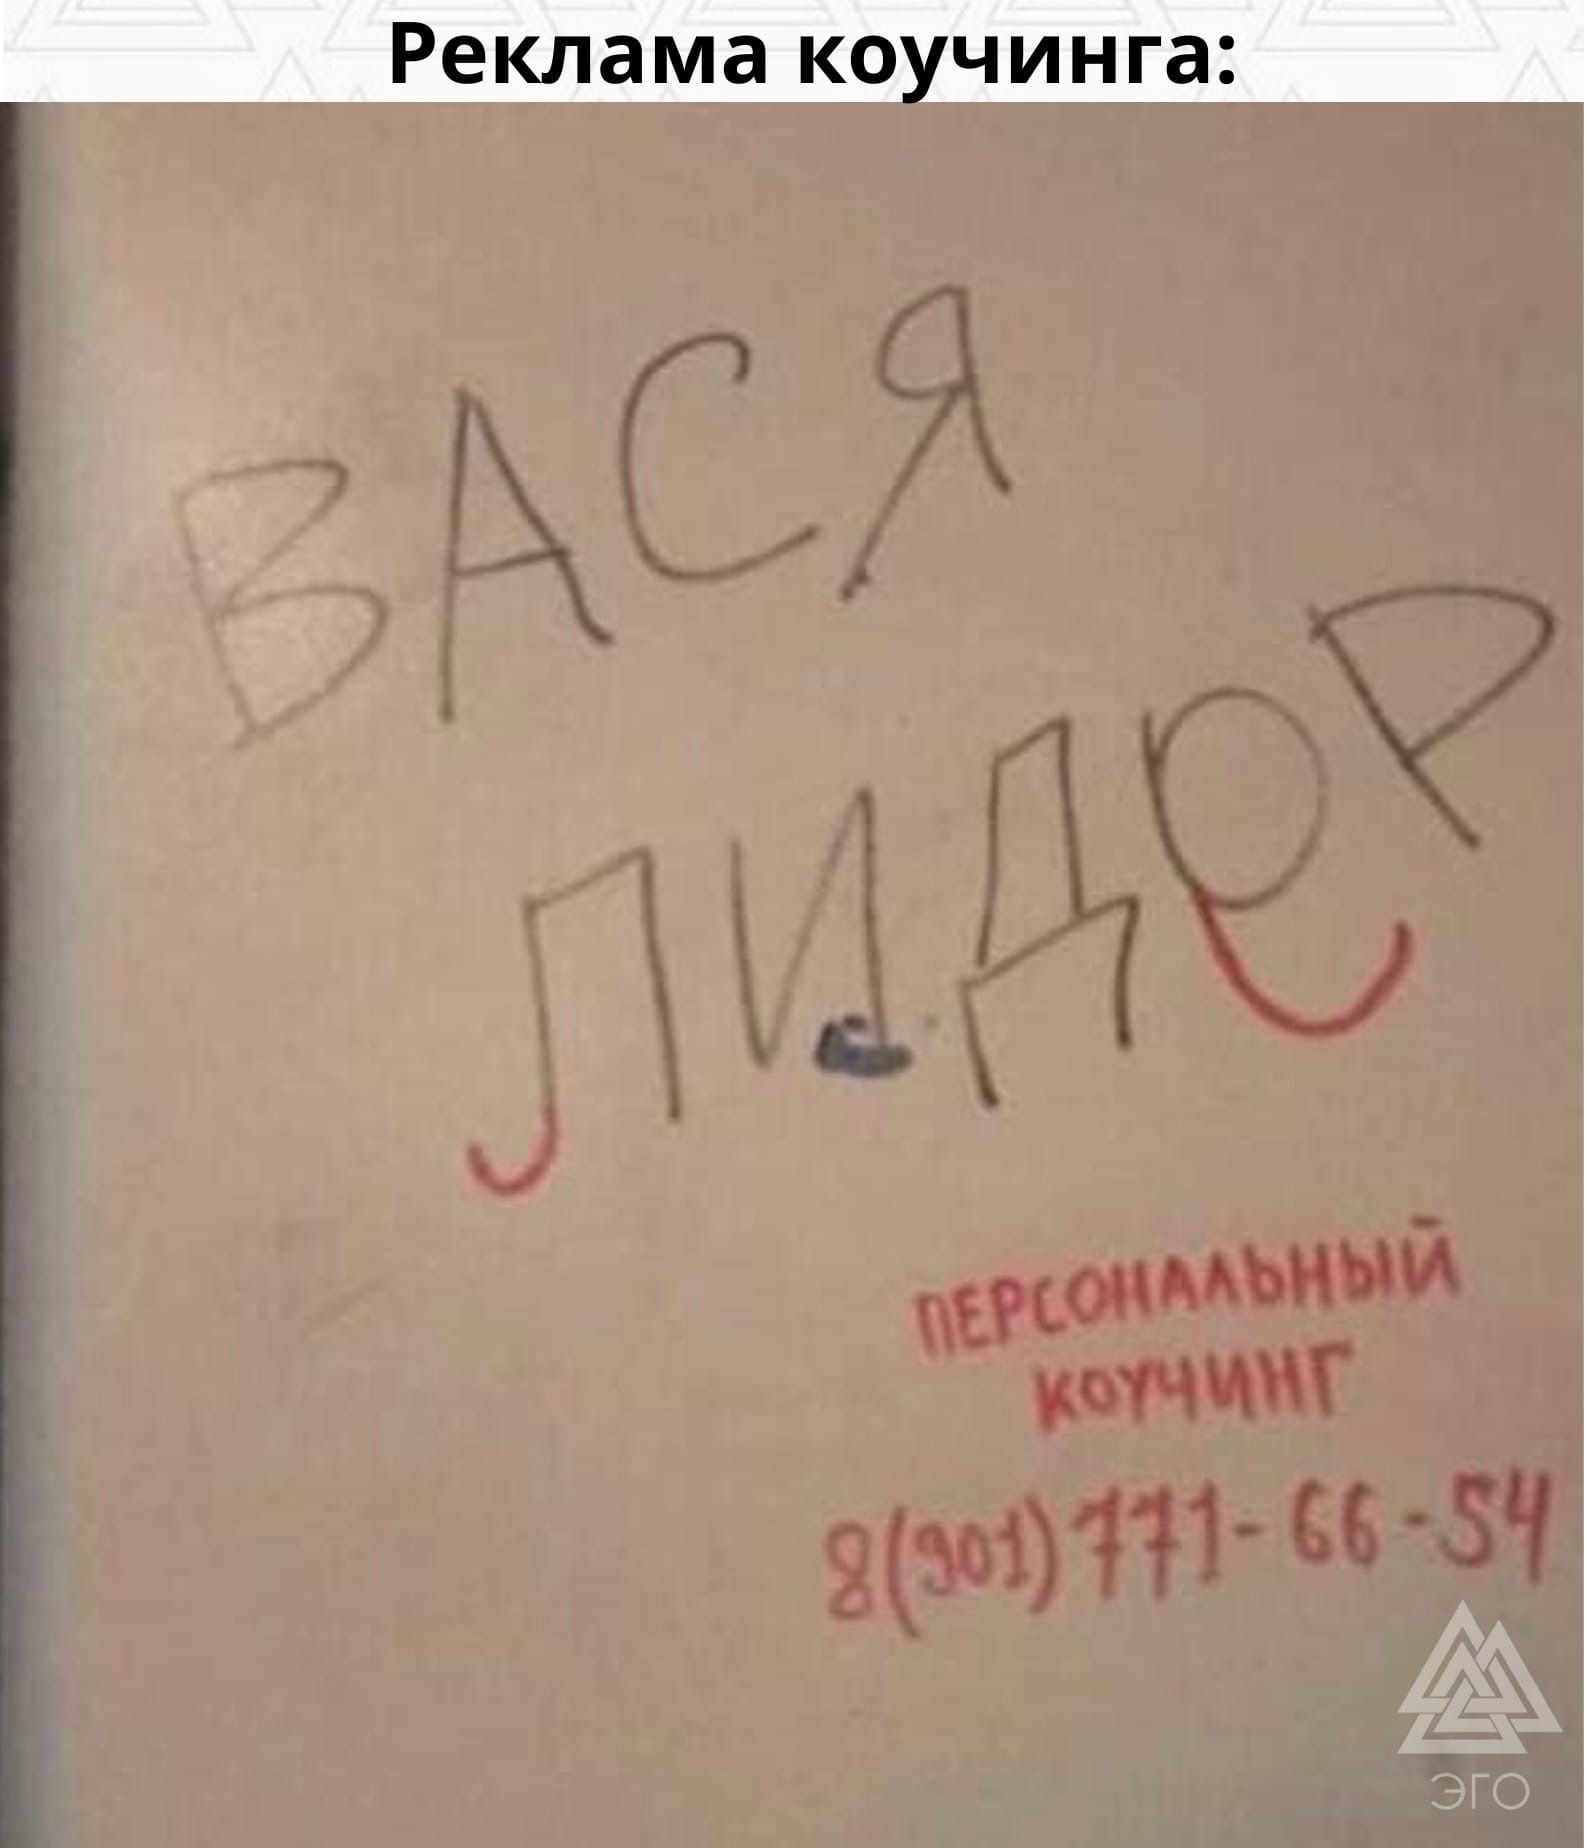 Реклама коучинга:
ВАСЯ
ЛИДеР
ПЕРСОНАЛЬНЫЙ
КОУЧИНГ
8(901)771-66-54
ЭГО